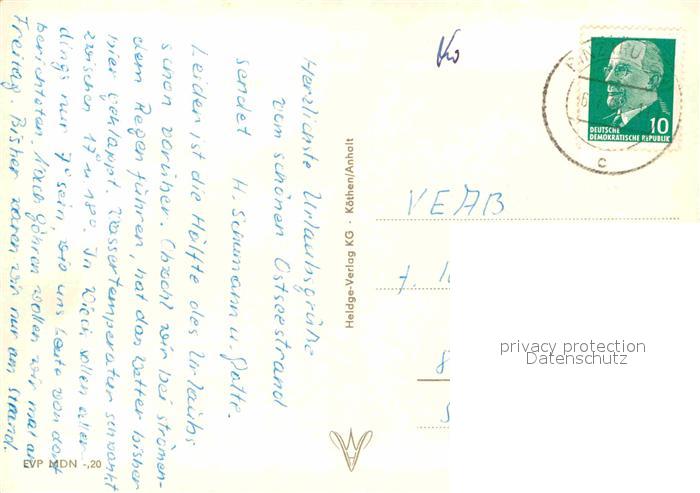 Herzlichste Urlaubsgrüße
vom schönen Ostseestrand
sendet H. Schumann u. Gattr.
Leider ist die Hälfte des Urlaubs
schon vorüber. Obwohl wir bei strömen-
dem Regen führen, hat das Wetter bisher
hier geklappt. Wassertemperatur schwankt
zwischen 17° u 18°. In Wiek sollen aller-
dings nur 7° sein, wie uns Leute von dort
berichteten. Nach Göhren wollen wir mal am
Freitag. Bisher waren wir nur am Strand.
EVP MDN -,20
Heldge-Verlag KG · Köthen/Anhalt
Ko
DEUTSCHE
DEMOKRATISCHE REPUBLIK
10
c
VEAB
privacy protection
Datenschutz